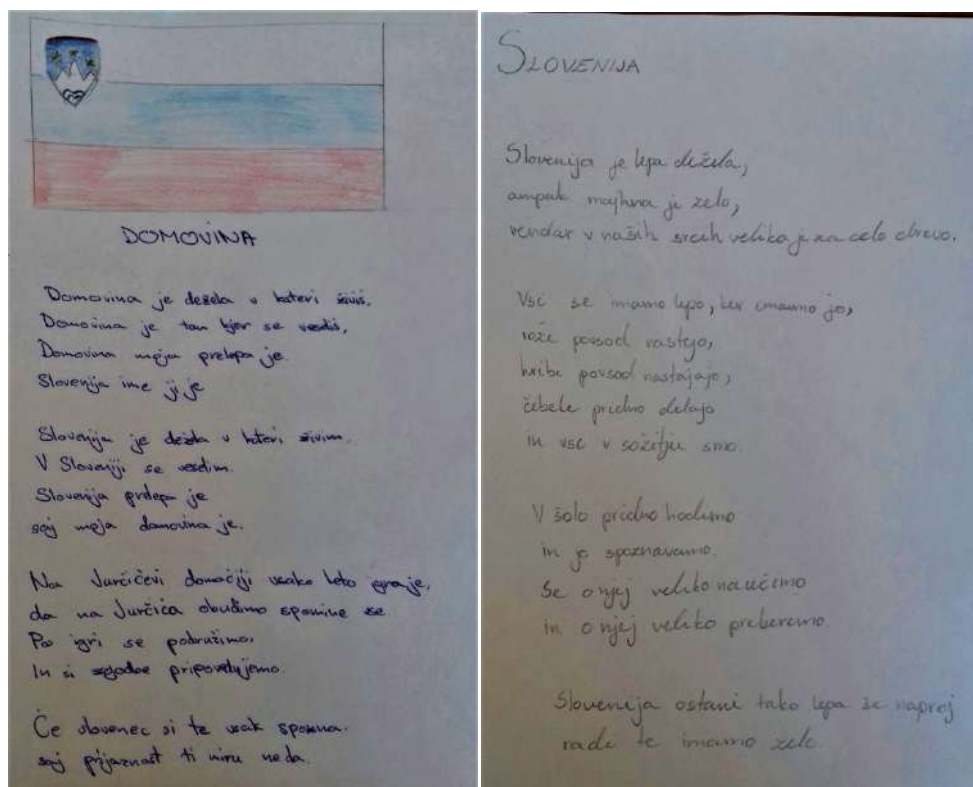 DOMOVINA
Domovina je dežela v kateri živiš.
Domovina je tam kjer se vesdiš,
Domovina moja prelepa je.
Slovenija ime ji je
Slovenija je dežela v kateri živim.
V Sloveniji se vesdim.
Slovenija prelepa je
saj moja domovina je.
Na Jurčičevi domačiji vsako leto igra je,
da na Jurčiča obudimo spomine se
Po igri se pobružimo,
In si zgodbe pripovedujemo.
Če slovenec si te vsak spozna.
saj prijaznost ti miru neda.
SLOVENIJA
Slovenija je lepa dežela,
ampak majhna je zelo,
vendar v naših srcih velika je za celo drevo.
Vsi se imamo lepo, ker imamo jo,
rože povsod rastejo,
hribi povsod nastajajo,
čebele pridno delajo
in vsi v sožitju smo.
V šolo pridno hodimo
in jo spoznavamo.
Se o njej veliko naučimo
in o njej veliko preberemo.
Slovenija ostani tako lepa še naprej
radi te imamo zelo.